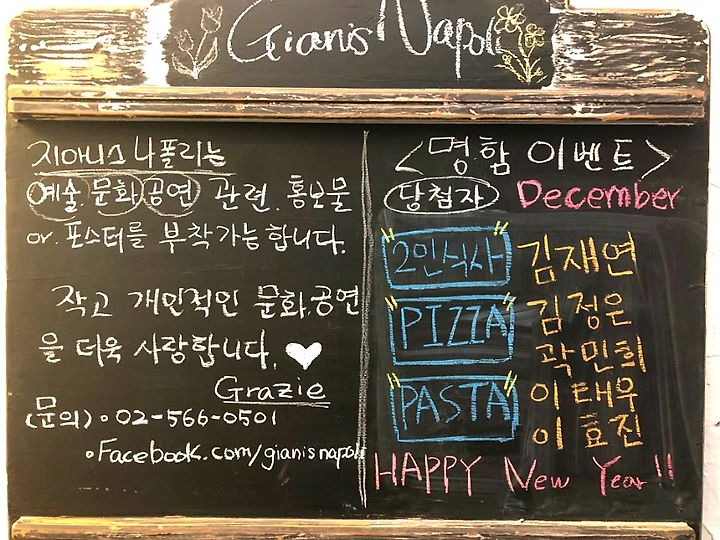 Gianis Napoli
지아니스 나폴리는
예술.문화공연 관련.홍보물
or.포스터를 부착가능합니다.
작고 개인적인 문화.공연
을 더욱 사랑합니다.
Grazie
(문의)。02-566-0501
。Facebook.com/gianisnapoli
<명함 이벤트>
당첨자 December
2인식사 김재연
PIZZA 김정은
곽민희
PASTA 이태우
이효진
HAPPY New Year!!